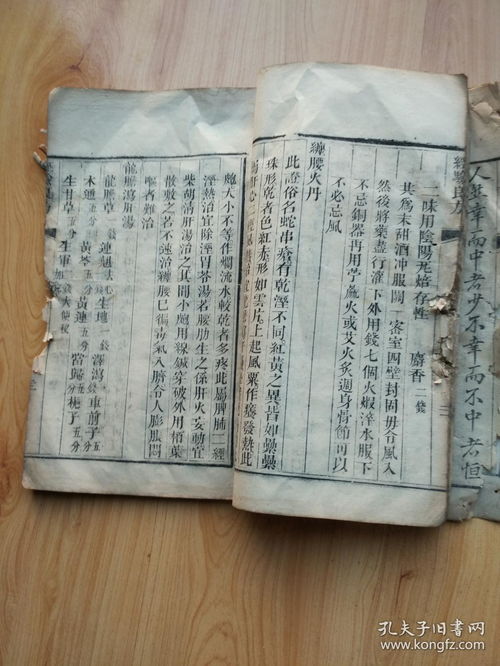 人無幸而中者少不幸而不中者恒
經驗良方
一味用陰陽瓦焙存性　麝香二錢
共為末甜酒冲服閉一密室四壁封固毋令風入
然後將藥盡行灌下外用錢七個火煅淬水服下
不忌銅器再用苧蔴火或艾火炙週身骨節可以
不必忌風
纏腰火丹
此證俗名蛇串瘡有乾溼不同紅黃之異皆如纍纍
珠形乾者色紅赤形如雲片上起風粟作癢發熱此
屬肝心
大小不等作爛流水較乾者多疼此屬脾肺二經
溼熱治宜除溼胃苓湯若腰肋生之係肝火妄動宜
柴胡清肝湯治之其間小疱用線鍼穿破外用柏葉
散敷之若不速治纏腰已徧毒氣入臍令人膨脹悶
嘔者難治
龍膽瀉肝湯
龍膽草　連翹去心　生地一錢　澤瀉一錢　車前子五分
木通五分　黃芩五分　黃連五分　當歸五分　梔子五分
生甘草五分　生軍加二錢大便秘
孔夫子旧书网
www.kongfz.com